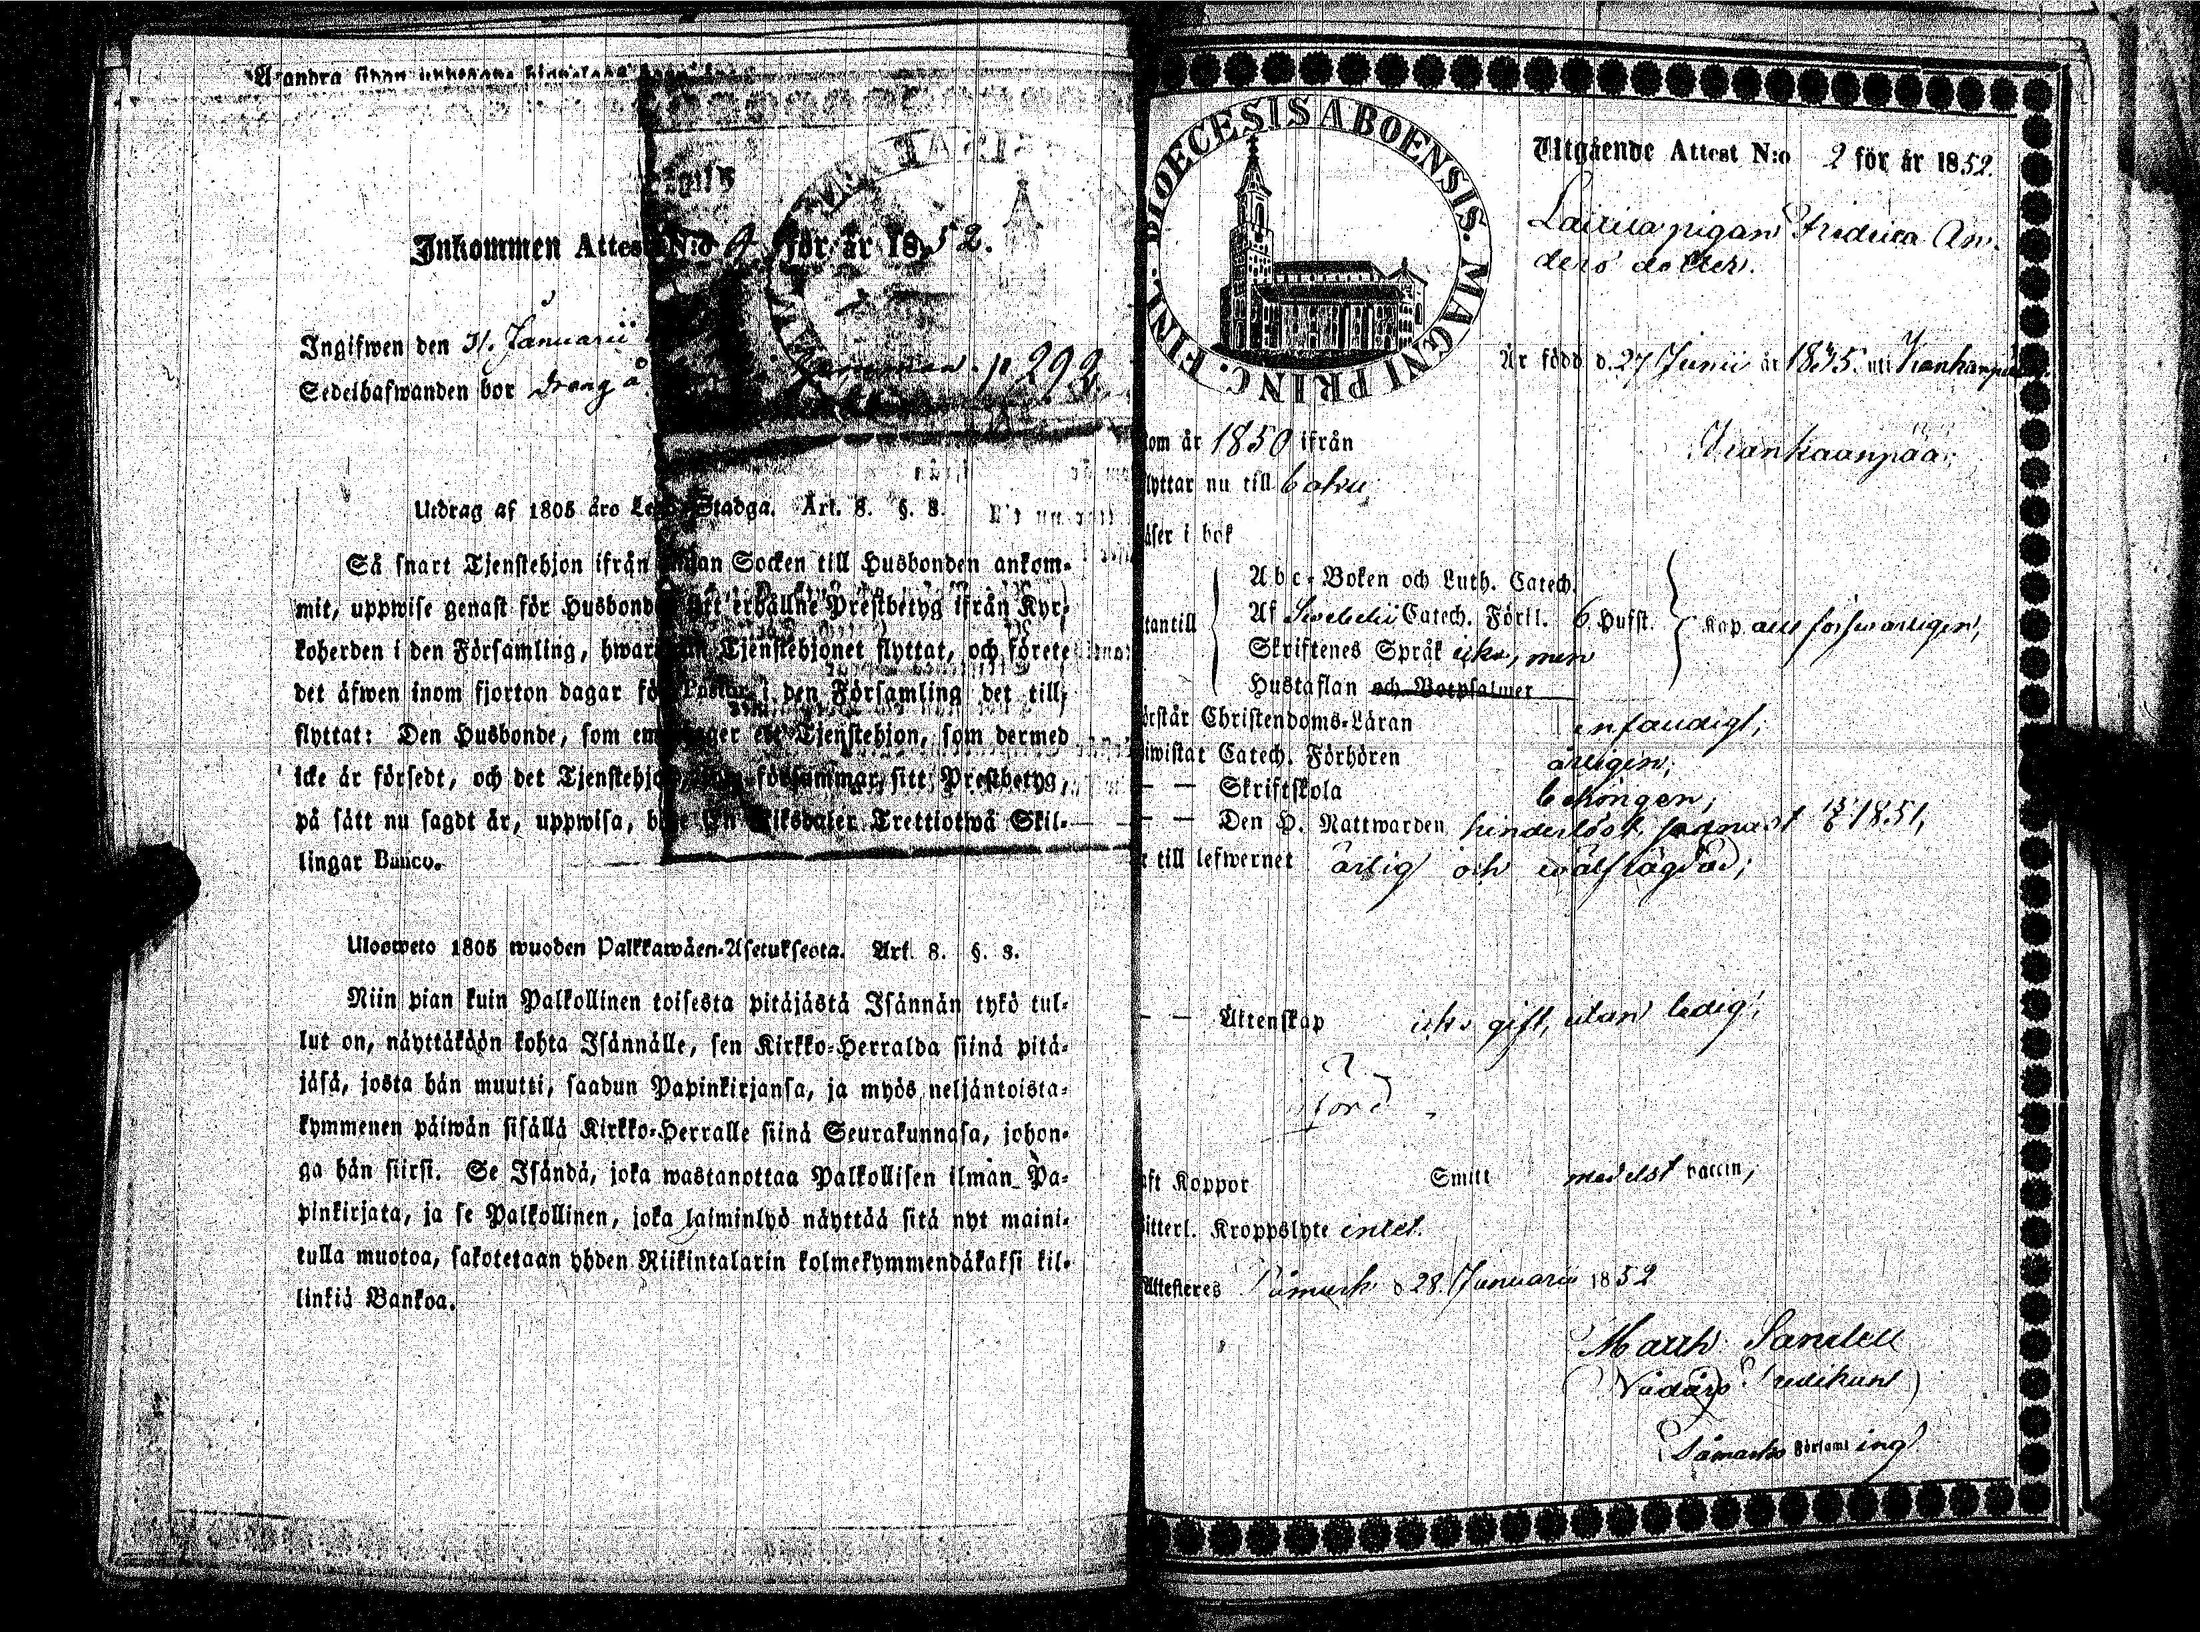 Inkommen Attest N:o 9 för år 1852.
Ingifwen den 31. Januarii
Sedelhafwanden bor p 292.
Utdrag af 1805 åro Lego-Stadga. Art. 8. §. 8.
Så snart Tjenstehjon ifrån annan Socken till Husbonden ankom-
mit, uppwise genast för Husbonden sitt erhållne Prestbetyg ifrån Kyr-
koherden i den Församling, hwarifrån Tjenstehjonet flyttat, och förete
det äfwen inom fjorton dagar för Pastor i den Församling det till-
flyttat: Den Husbonde, som emottager ett Tjenstehjon, som dermed
icke är försedt, och det Tjenstehjon, som försummar, sitt Prestbetyg,
på sätt nu sagdt är, uppwisa, böte En Riksdaler Trettiotwå Skil-
lingar Banco.
Ulosweto 1805 wuoden Palkkawäen-Asetuksesta. Art. 8. §. 8.
Niin pian kuin Palkollinen toisesta pitäjästä Isännän tykö tul-
lut on, näyttäköön kohta Isännälle, sen Kirkko-Herralda siinä pitä-
jäsä, josta hän muutti, saadun Papinkirjansa, ja myös neljäntoista-
kymmenen päiwän sisällä Kirkko-Herralle siinä Seurakunnasa, johon-
ga hän siirsi. Se Isändä, joka wastanottaa Palkollisen ilman Pa-
pinkirjata, ja se Palkollinen, joka laiminlyö näyttää sitä nyt maini-
tulla muotoa, sakotetaan yhden Riikintalarin kolmekymmendäkaksi kil-
linkiä Bankoa.
DIOECESIS ABOENSIS. MAGNI PRINC. FINL.
Utgående Attest N:o 2 för år 1852.
pigan Fredrica An-
ders dotter.
Är född d. 27 Junii år 1835. uti
om år 1850 ifrån Kankaanpää;
lyttar nu till
äser i bok
Abc-Boken och Luth. Catech.
tantill Af Swebelii Catech. Förkl. 6 Hufst. Kap. allt försvarligen,
Skriftenes Språk icke, men
Hustaflan och Botpsalmer
örstår Christendoms-Läran enfaldigt;
iwistat Catech. Förhören årligen,
— — Skriftskola behörigen;
— — Den H. Nattwarden hinderlöst, 1851,
r till lefwernet ärlig och wälfrägdad;
— — Äktenskap icke gift, utan ledig;
aft Koppor Smitt medelst vaccin,
itterl. Kroppslyte intet.
Attesteres Påmark d 28. Januarii 1852
Matth. Sandell
Vice Predikant
Påmarks Församling